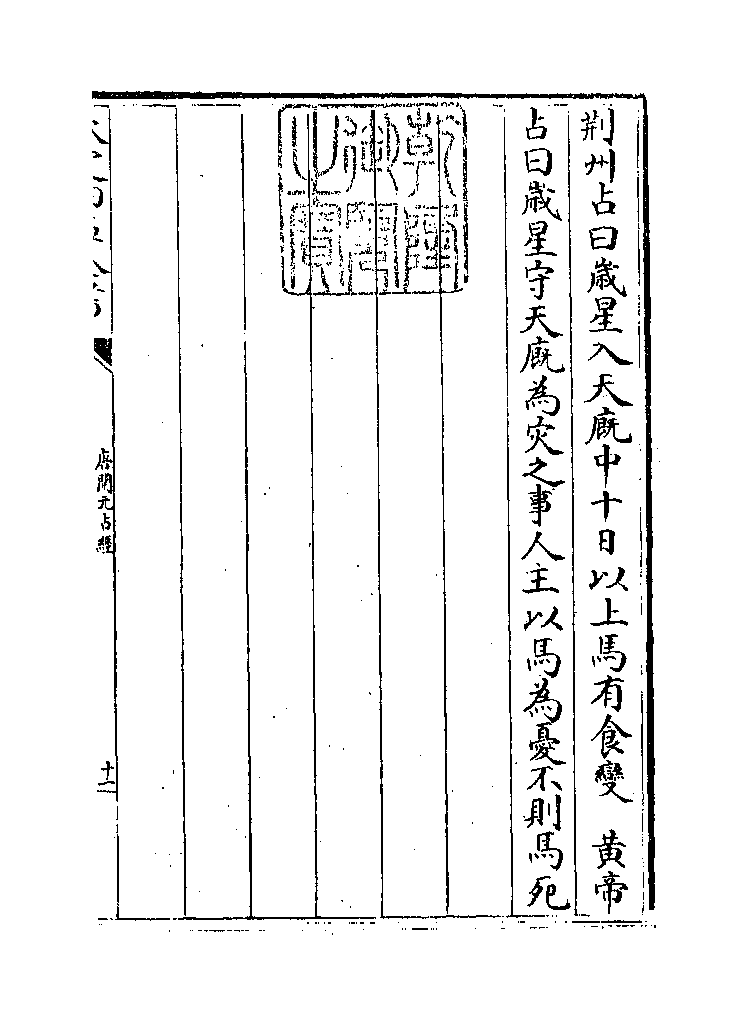 荆州占曰歳星入天廐中十日以上馬有食變　黄帝
占曰歳星守天廐為灾之事人主以馬為憂不則馬死
乾隆御覽之寶
唐開元占經
十二